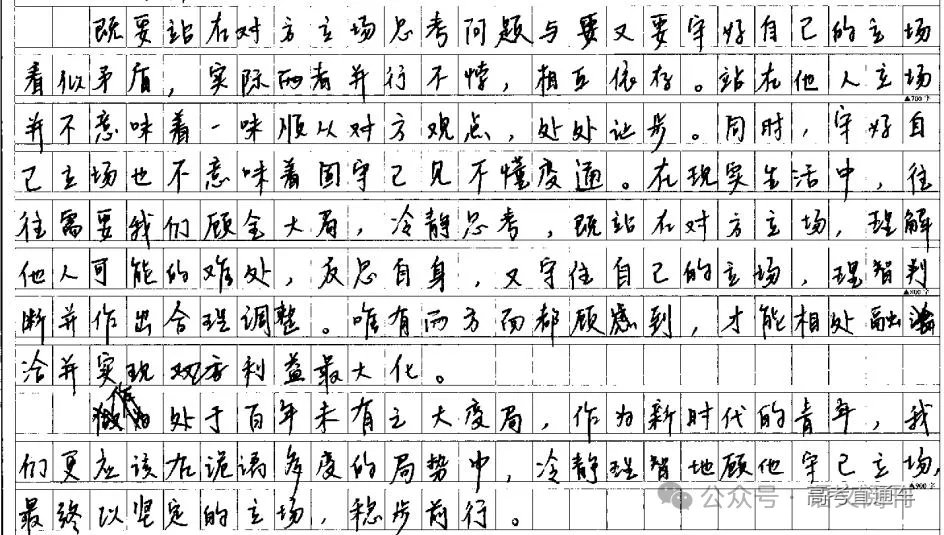 既要站在对方立场思考问题与要又要守好自己的立场
看似矛盾，实际两者并行不悖，相互依存。站在他人立场
▲700字
并不意味着一味顺从对方观点，处处让步。同时，守好自
己立场也不意味着固守己见不懂变通。在现实生活中，往
往需要我们顾全大局，冷静思考，既站在对方立场，理解
他人可能的难处，反思自身，又守住自己的立场，理智判
▲800字
断并作出合理调整。唯有两方面都顾虑到，才能相处融
洽并实现双方利益最大化。
作为处于百年未有之大变局，作为新时代的青年，我
们更应该在诡谲多变的局势中，冷静理智地顾他守己立场，
▲900字
最终以坚定的立场，稳步前行。
公众号·高考直通车